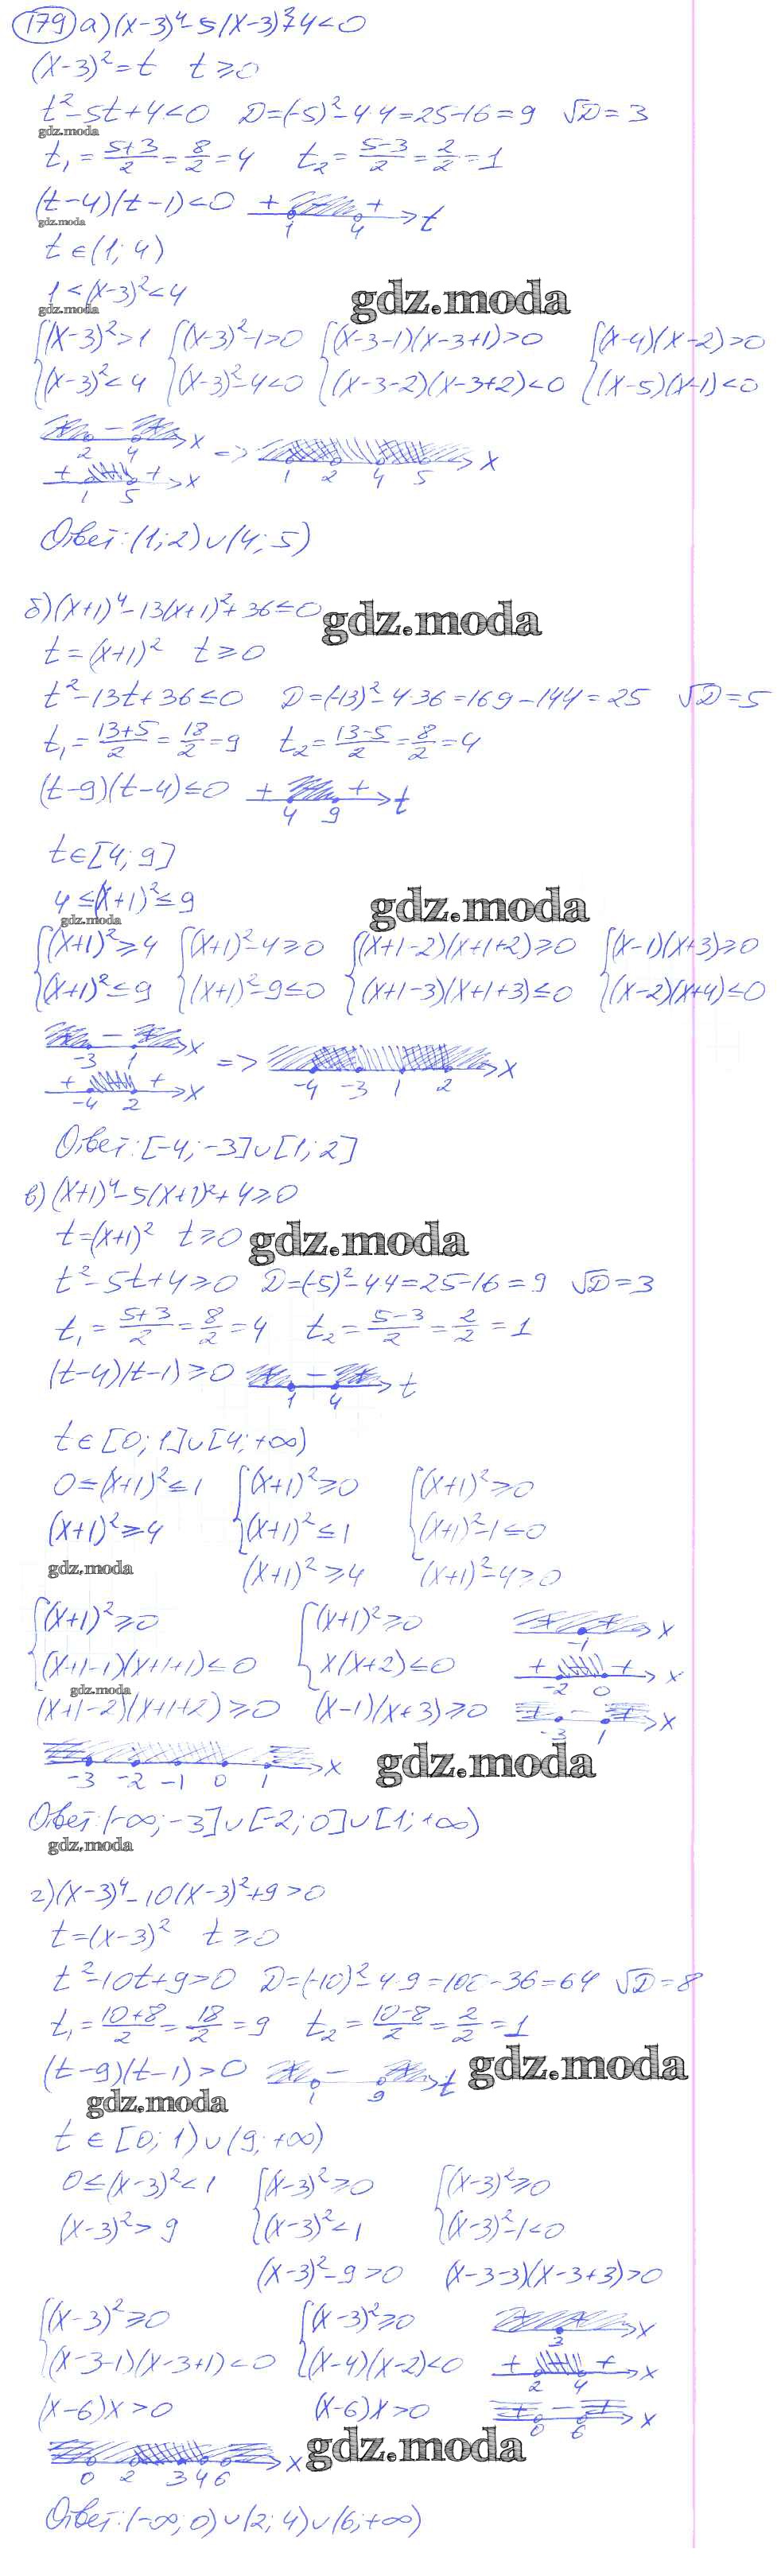 179 а) (x-3)⁴-5(x-3)²+4<0
(x-3)²=t t≥0
t²-5t+4<0 D=(-5)²-4·4=25-16=9 √D=3
gdz.moda
t₁=(5+3)/2=8/2=4 t₂=(5-3)/2=2/2=1
(t-4)(t-1)<0 + + t
gdz.moda
1 4
t∈(1;4)
1<(x-3)²<4
gdz.moda gdz.moda
{(x-3)²>1 {(x-3)²-1>0 {(x-3-1)(x-3+1)>0 {(x-4)(x-2)>0
{(x-3)²<4 {(x-3)²-4<0 {(x-3-2)(x-3+2)<0 {(x-5)(x-1)<0
+ - + x
2 4 => 1 2 4 5 x
+ + x
1 5
Ответ: (1;2)∪(4;5)
б) (x+1)⁴-13(x+1)²+36≤0
gdz.moda
t=(x+1)² t≥0
t²-13t+36≤0 D=(-13)²-4·36=169-144=25 √D=5
t₁=(13+5)/2=18/2=9 t₂=(13-5)/2=8/2=4
(t-9)(t-4)≤0 + + t
4 9
t∈[4;9]
4≤(x+1)²≤9
gdz.moda gdz.moda
{(x+1)²≥4 {(x+1)²-4≥0 {(x+1-2)(x+1+2)≥0 {(x-1)(x+3)≥0
{(x+1)²≤9 {(x+1)²-9≤0 {(x+1-3)(x+1+3)≤0 {(x-2)(x+4)≤0
+ - + x
-3 1 => -4 -3 1 2 x
+ + x
-4 2
Ответ: [-4;-3]∪[1;2]
в) (x+1)⁴-5(x+1)²+4≥0
t=(x+1)² t≥0
gdz.moda
t²-5t+4≥0 D=(-5)²-4·4=25-16=9 √D=3
t₁=(5+3)/2=8/2=4 t₂=(5-3)/2=2/2=1
(t-4)(t-1)≥0 + - + t
1 4
t∈[0;1]∪[4;+∞)
0≤(x+1)²≤1 {(x+1)²≥0 {(x+1)²≥0
(x+1)²≥4 {(x+1)²≤1 {(x+1)²-1≤0
gdz.moda (x+1)²≥4 (x+1)²-4≥0
{(x+1)²≥0 {(x+1)²≥0 + + x
-1
{(x+1-1)(x+1+1)≤0 {x(x+2)≤0 + + x
gdz.moda -2 0
(x+1-2)(x+1+2)≥0 (x-1)(x+3)≥0 + - + x
-3 1
x
-3 -2 -1 0 1
gdz.moda
Ответ: (-∞;-3]∪[-2;0]∪[1;+∞)
gdz.moda
г) (x-3)⁴-10(x-3)²+9>0
t=(x-3)² t≥0
t²-10t+9>0 D=(-10)²-4·9=100-36=64 √D=8
t₁=(10+8)/2=18/2=9 t₂=(10-8)/2=2/2=1
(t-9)(t-1)>0 + - + t
1 9
gdz.moda
gdz.moda
t∈[0;1)∪(9;+∞)
0≤(x-3)²<1 {(x-3)²≥0 {(x-3)²≥0
(x-3)²>9 {(x-3)²<1 {(x-3)²-1<0
(x-3)²-9>0 (x-3-3)(x-3+3)>0
{(x-3)²≥0 {(x-3)²≥0 + + x
3
{(x-3-1)(x-3+1)<0 {(x-4)(x-2)<0 + + x
2 4
(x-6)x>0 (x-6)x>0 + - + x
0 6
x
0 2 3 4 6
gdz.moda
Ответ: (-∞;0)∪(2;4)∪(6;+∞)